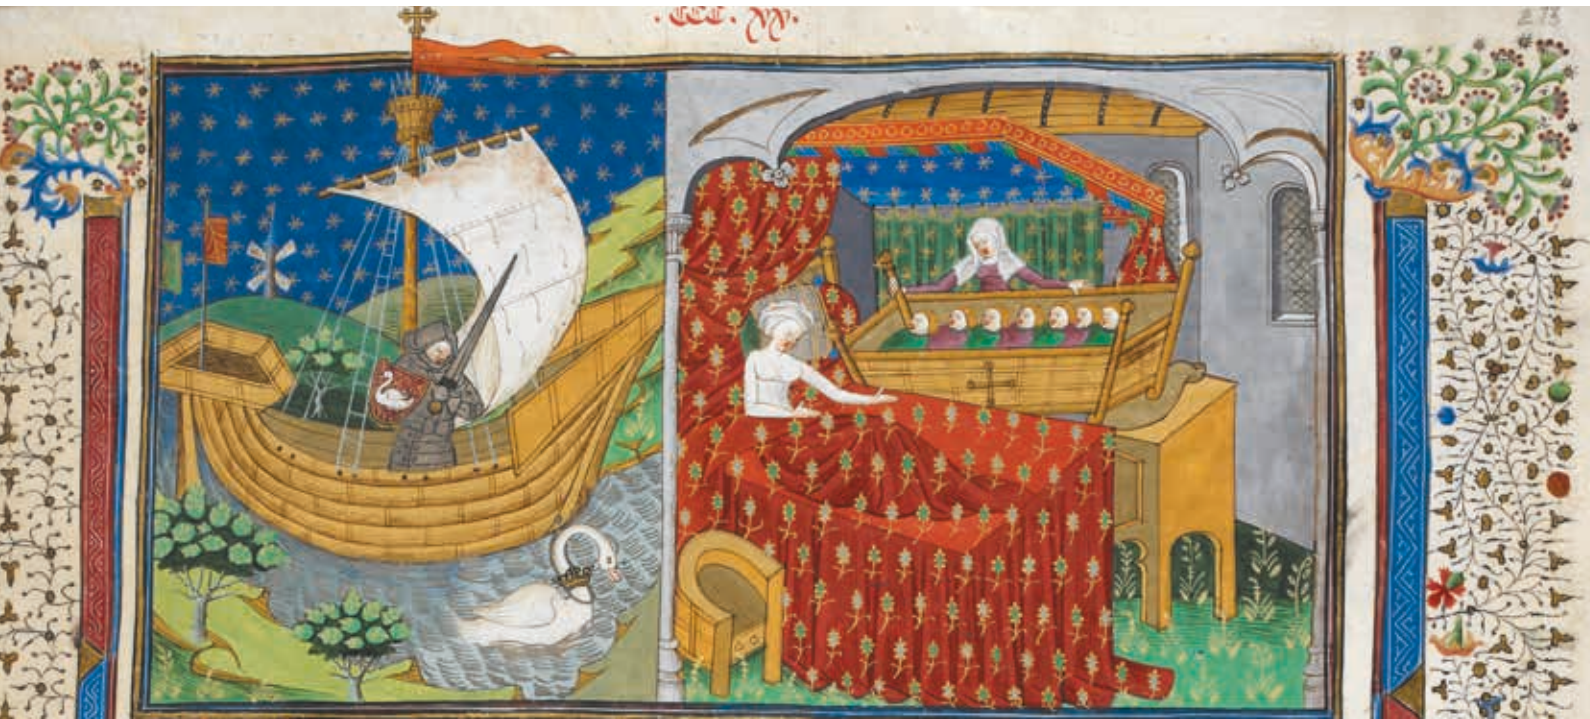 .CCC. XV.
273